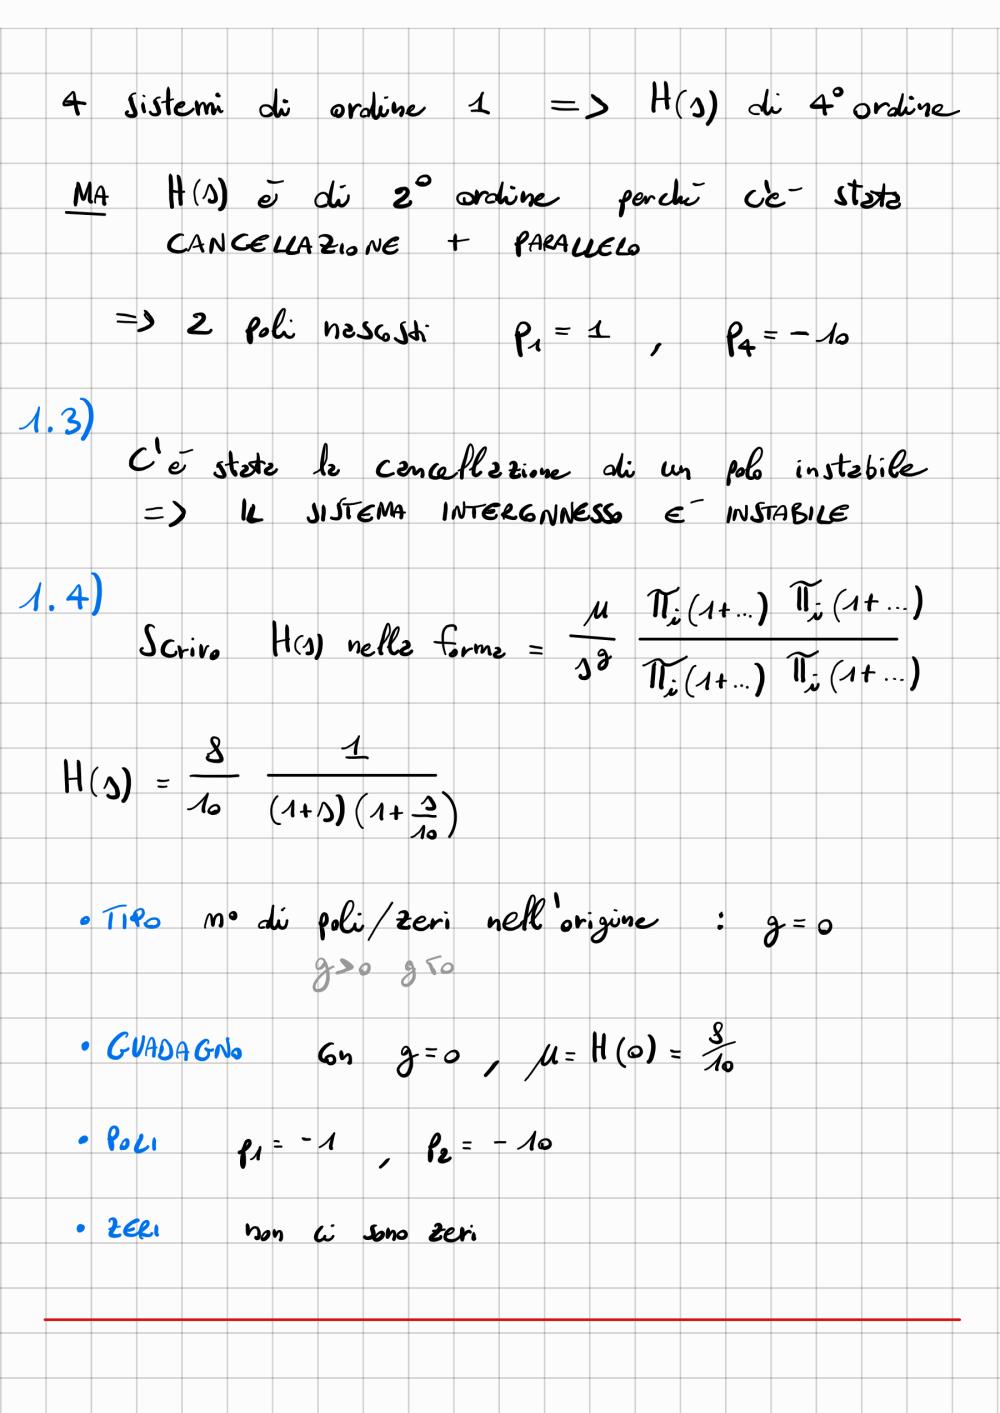 4 sistemi di ordine 1 => H(s) di 4° ordine
MA H(s) è di 2° ordine perché c'è stata
CANCELLAZIONE + PARALLELO
=> 2 poli nascosti p₁ = 1 , p₄ = -10
1.3)
C'è stata la cancellazione di un polo instabile
=> IL SISTEMA INTERCONNESSO È INSTABILE
1.4)
Scrivo H(s) nella forma = μ/s^g · Π_i(1+...) Π_i(1+...) / Π_i(1+...) Π_i(1+...)
H(s) = 8/10 · 1/((1+s)(1+s/10))
• TIPO n° di poli/zeri nell'origine : g=0
g>0 g<0
• GUADAGNO con g=0 , μ= H(0) = 8/10
• POLI p₁ = -1 , p₂ = -10
• ZERI non ci sono zeri